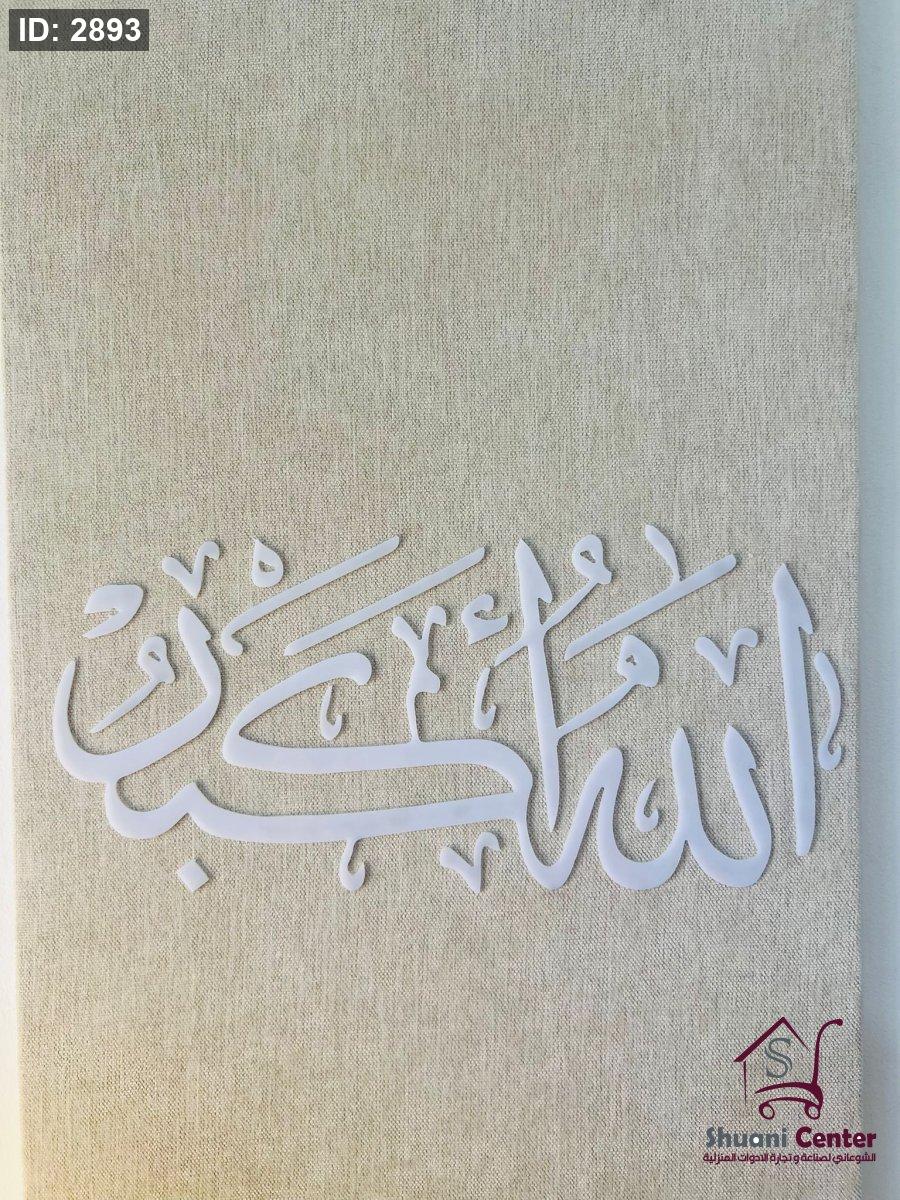 ID: 2893
اللهُ أَكْبَرُ
Shuani Center
الشوعاني لصناعة و تجارة الادوات المنزلية